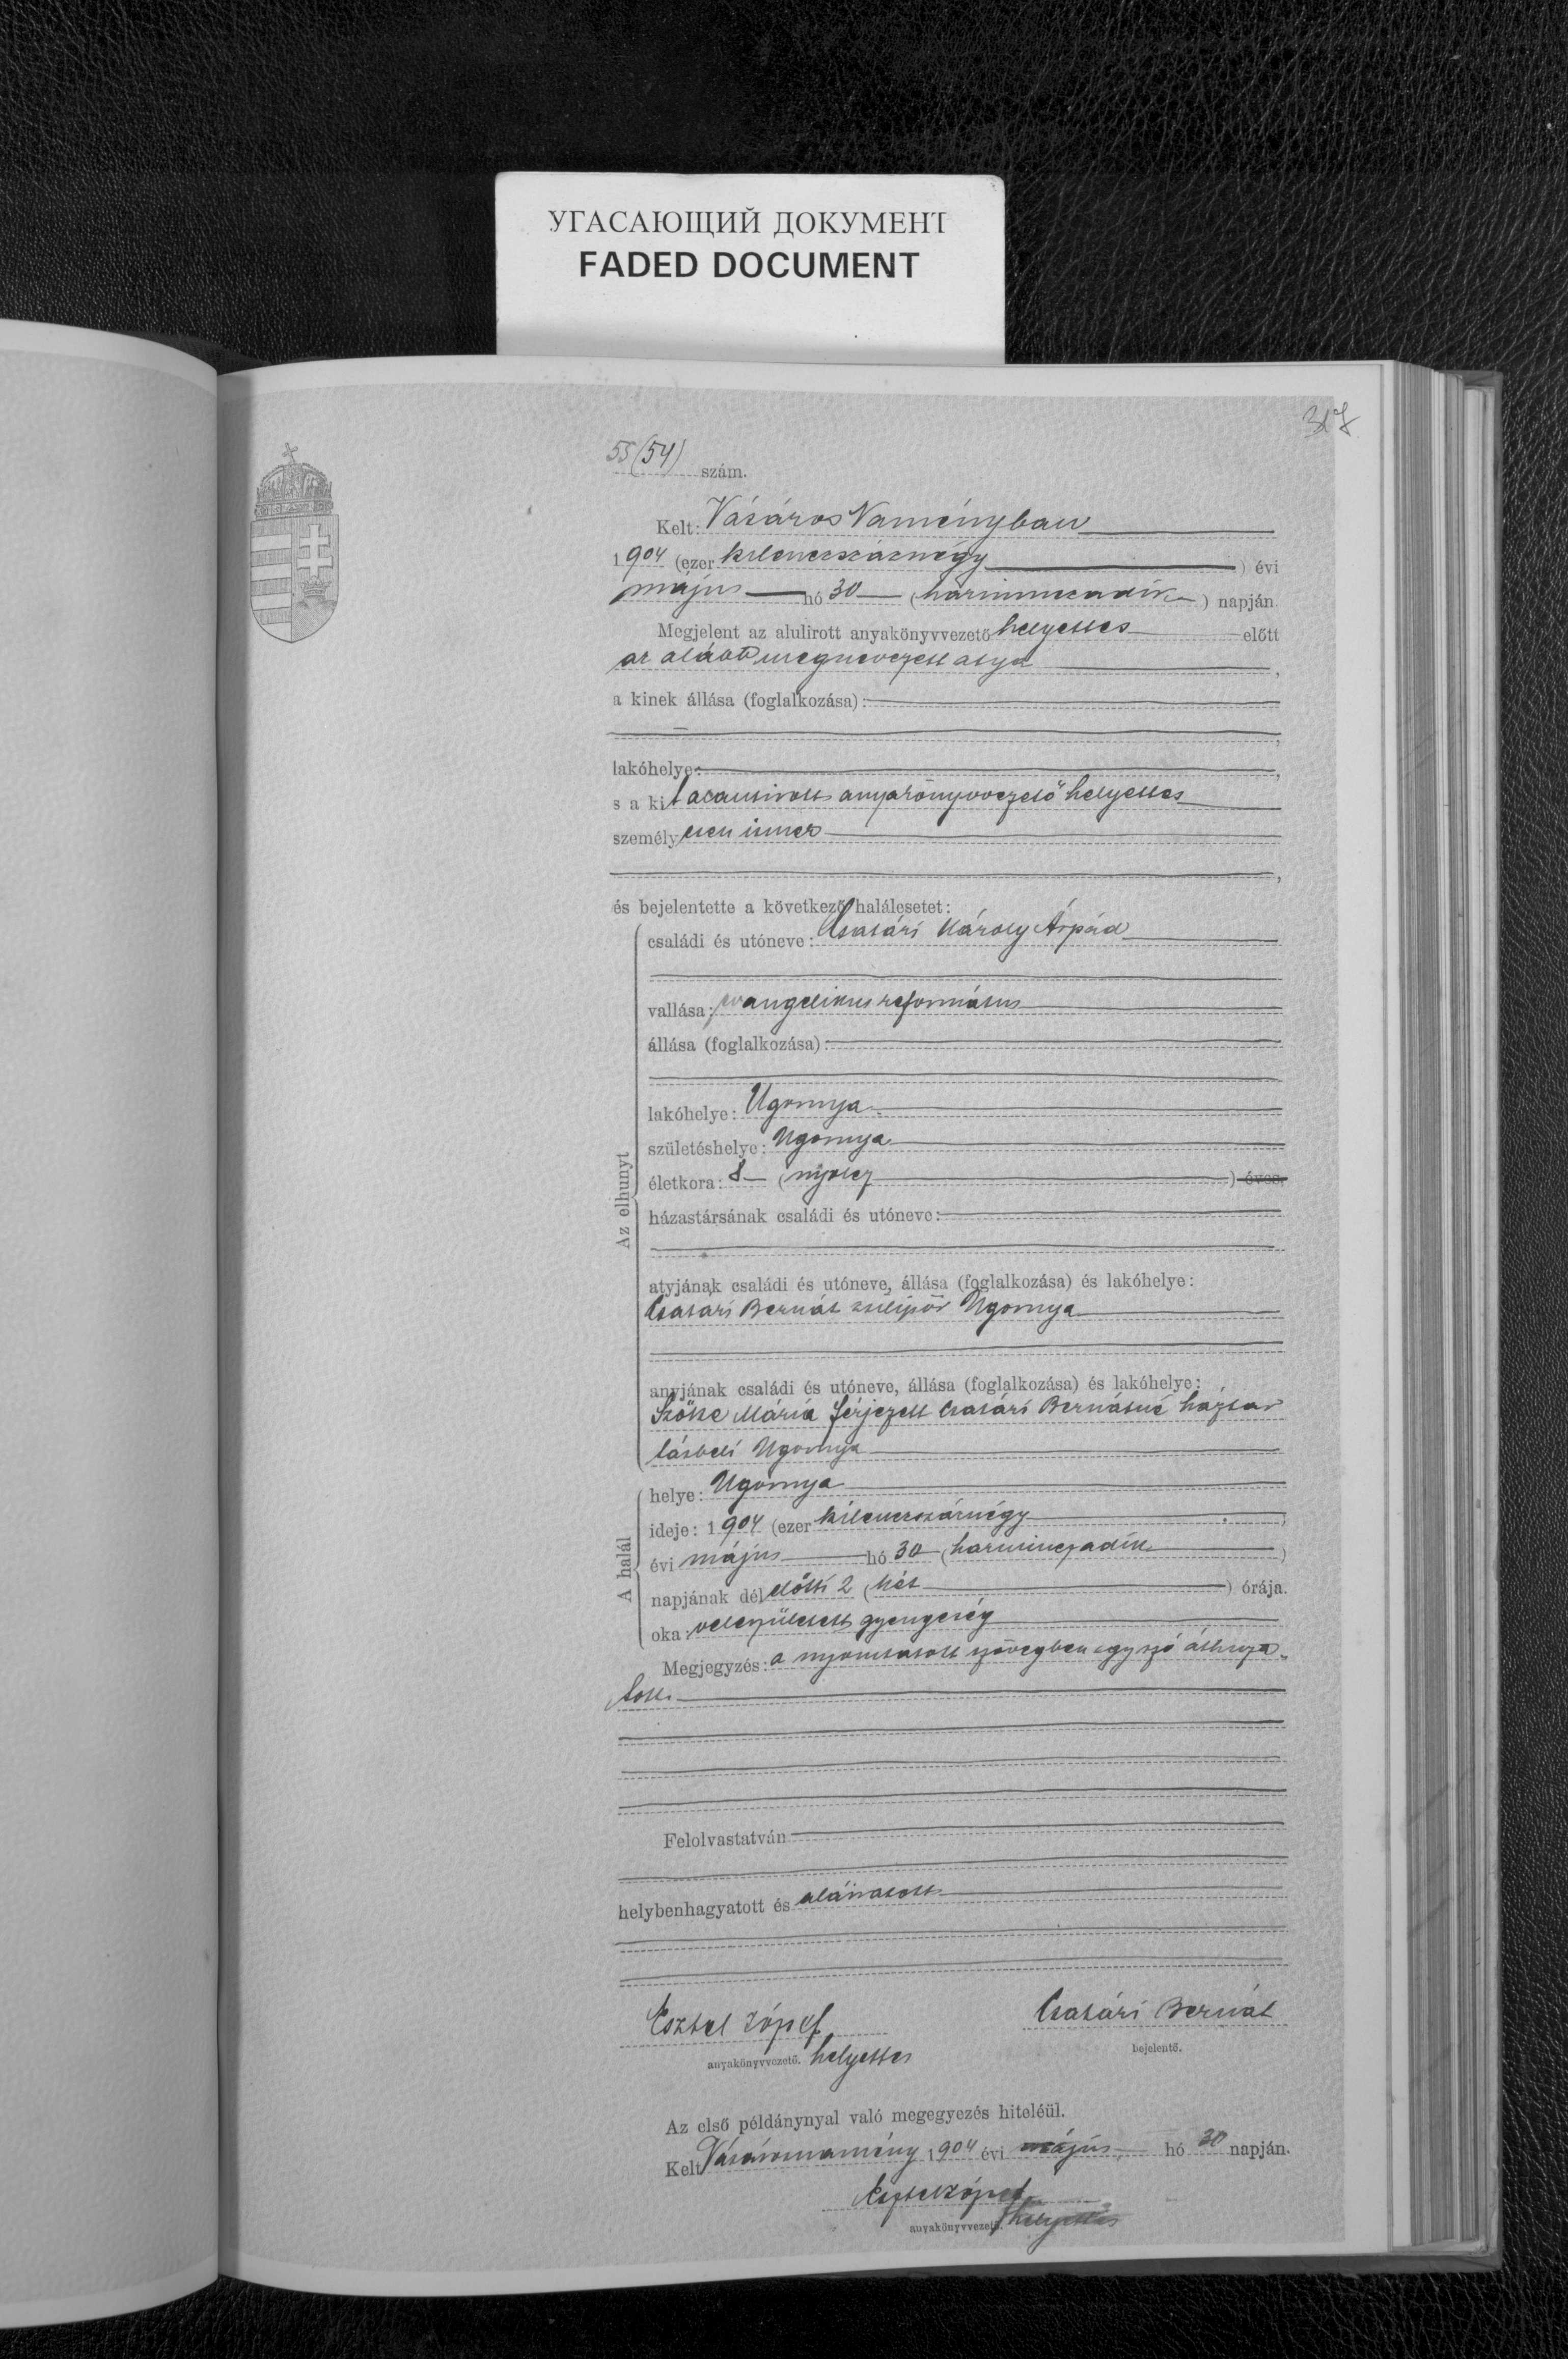 УГАСАЮЩИЙ ДОКУМЕНТ
FADED DOCUMENT
317
55(54) szám.
Kelt: Vásáros Naményban
1904 (ezer kilenczszáznégy) évi
május hó 30 (harminczadik) napján.
Megjelent az alulírott anyakönyvvezető helyettes előtt
az alább megnevezett atya,
a kinek állása (foglalkozása):
lakóhelye:
s a kit anyakönyvvezető helyettes
személyesen ismer
és bejelentette a következő halálesetet:
Az elhunyt
családi és utóneve: Csatári Károly Árpád
vallása: evangelikus református
állása (foglalkozása):
lakóhelye: Ugornya
születéshelye: Ugornya
életkora: 8 (nyolcz) éves,
házastársának családi és utóneve:
atyjának családi és utóneve, állása (foglalkozása) és lakóhelye:
Csatári Bernát Ugornya
anyjának családi és utóneve, állása (foglalkozása) és lakóhelye:
Szőke Mária férjezett Csatári Bernátné háztar
tásbeli Ugornya
A halál
helye: Ugornya
ideje: 1904 (ezer kilenczszáznégy
évi május hó 30 (harminczadik)
napjának délelőtti 2 (két) órája.
oka: veleszületett gyengeség
Megjegyzés: a nyomtatott szövegben egy szó áthuza-
tott.
Felolvastatván
helybenhagyatott és aláiratott
Esztel József Csatári Bernát
anyakönyvvezető. helyettes bejelentő.
Az első példánynyal való megegyezés hiteléül.
Kelt Vásárosnamény 1904 évi május hó 30 napján.
Esztel József
anyakönyvvezető. helyettes